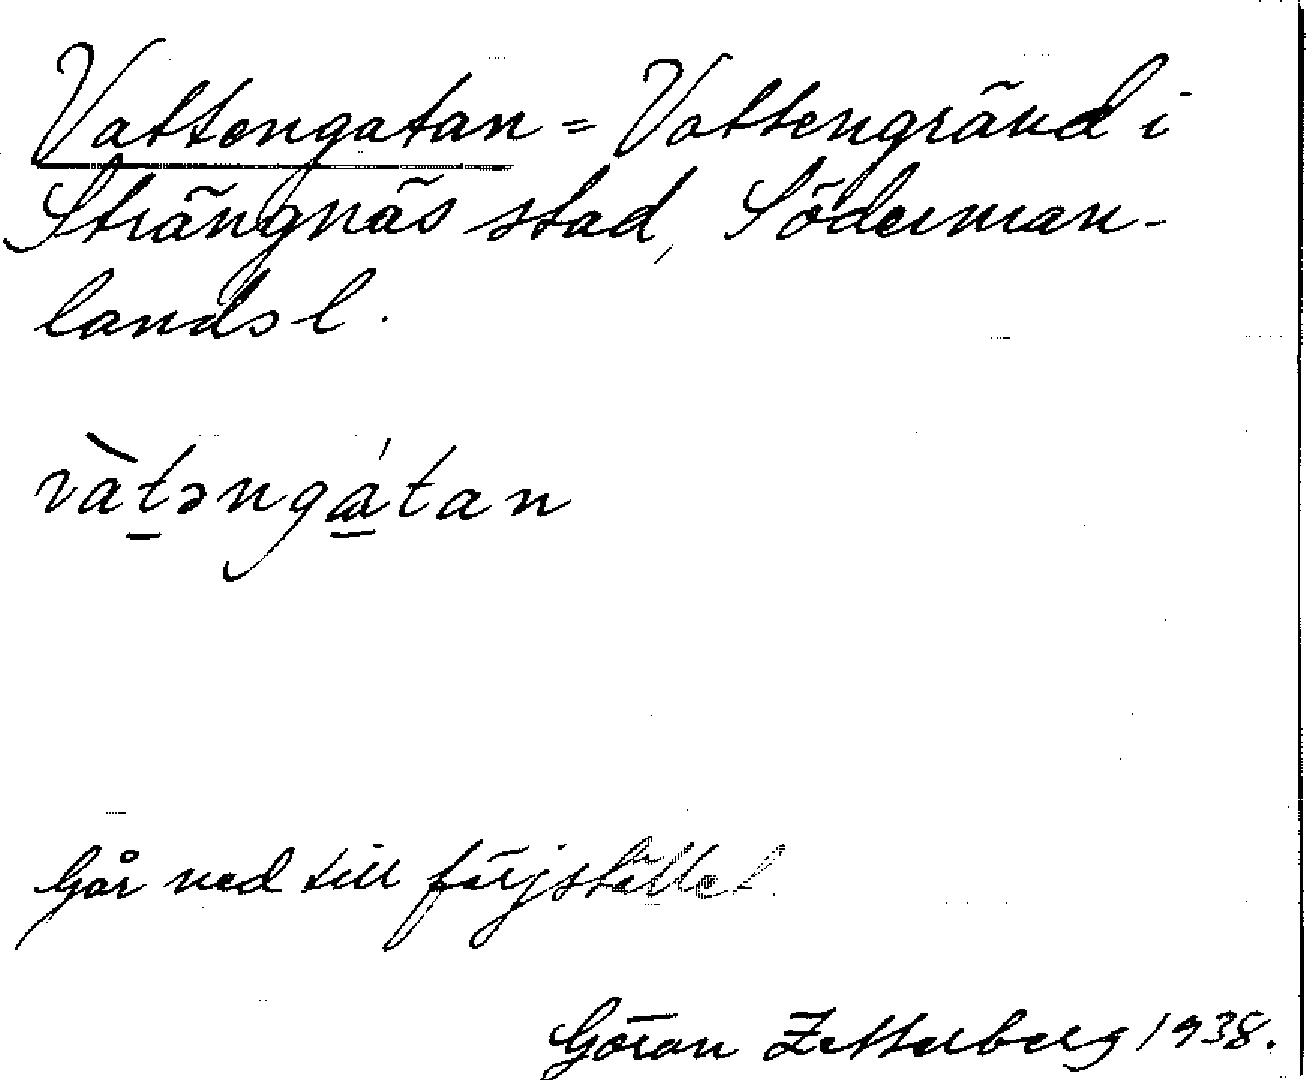 Vattengatan = Vattengränd i
Strängnäs stad, Söderman-
lands l.
vàtəngátan
Går ned till färjstället.
Göran Zetterberg 1938.